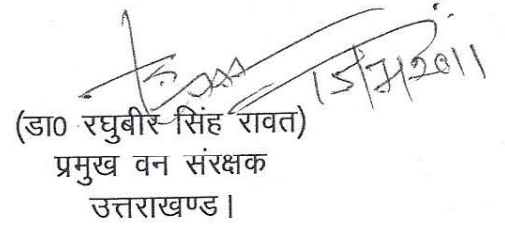 (डा0 रघुबीर सिंह रावत)
प्रमुख वन संरक्षक
उत्तराखण्ड।